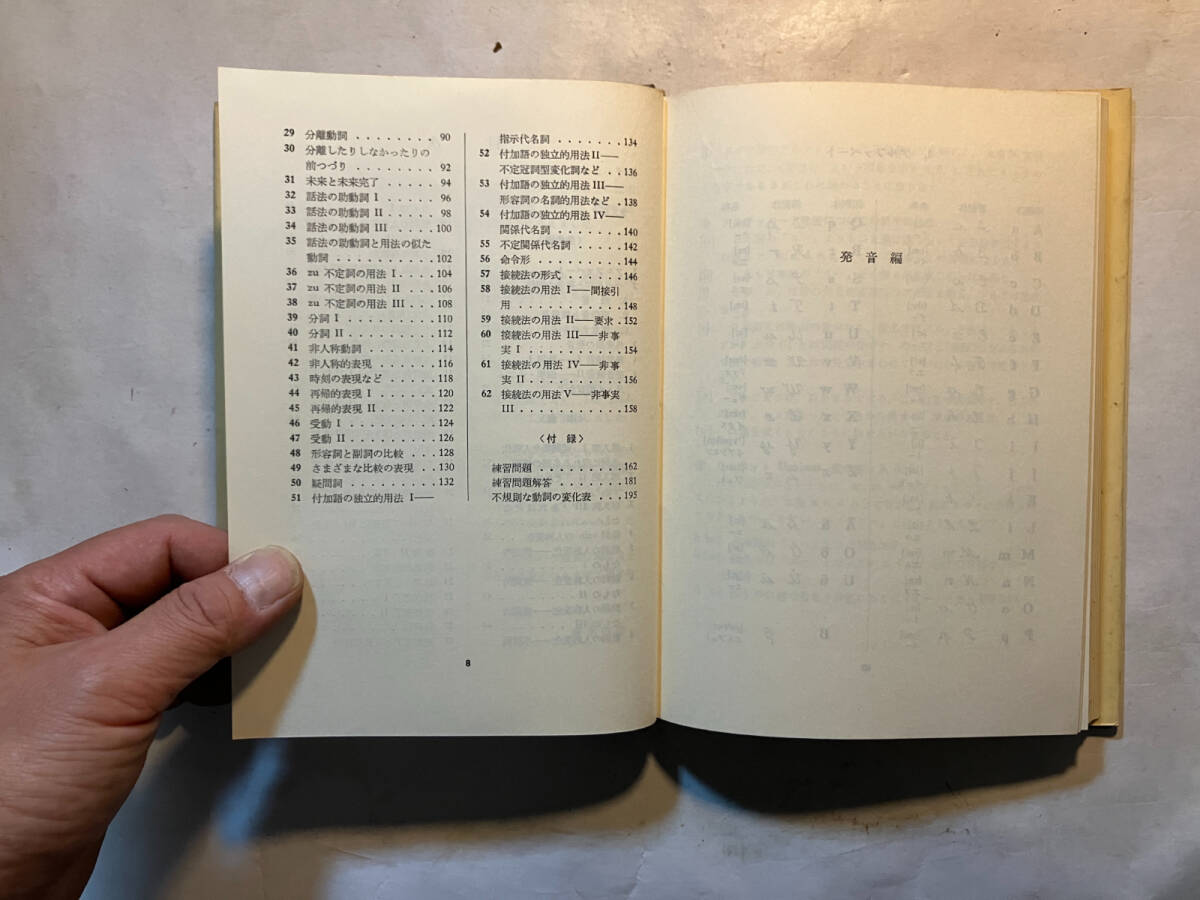 29 分離動詞 . . . . . . . . 90
30 分離したりしなかったりの
前つづり . . . . . . . . 92
31 未来と未来完了 . . . . . 94
32 話法の助動詞 I . . . . . 96
33 話法の助動詞 II . . . . . 98
34 話法の助動詞 III . . . . 100
35 話法の助動詞と用法の似た
動詞 . . . . . . . . . . 102
36 zu 不定詞の用法 I . . . . 104
37 zu 不定詞の用法 II . . . 106
38 zu 不定詞の用法 III . . . 108
39 分詞 I . . . . . . . . . 110
40 分詞 II . . . . . . . . . 112
41 非人称動詞 . . . . . . . 114
42 非人称的表現 . . . . . . 116
43 時刻の表現など . . . . . 118
44 再帰的表現 I . . . . . . 120
45 再帰的表現 II . . . . . . 122
46 受動 I . . . . . . . . . 124
47 受動 II . . . . . . . . . 126
48 形容詞と副詞の比較 . . . 128
49 さまざまな比較の表現 . . 130
50 疑問詞 . . . . . . . . . 132
51 付加語の独立的用法 I——
指示代名詞 . . . . . . . 134
52 付加語の独立的用法 II——
不定冠詞型変化詞など . . 136
53 付加語の独立的用法 III——
形容詞の名詞的用法など . 138
54 付加語の独立的用法 IV——
関係代名詞 . . . . . . . 140
55 不定関係代名詞 . . . . . 142
56 命令形 . . . . . . . . . 144
57 接続法の形式 . . . . . . 146
58 接続法の用法 I——間接引
用 . . . . . . . . . . . 148
59 接続法の用法 II——要求 . 152
60 接続法の用法 III——非事
実 I . . . . . . . . . . 154
61 接続法の用法 IV——非事
実 II . . . . . . . . . . 156
62 接続法の用法 V——非事実
III . . . . . . . . . . . 158
〈付 録〉
練習問題 . . . . . . . . . 162
練習問題解答 . . . . . . . 181
不規則な動詞の変化表 . . . 195
8
発 音 編